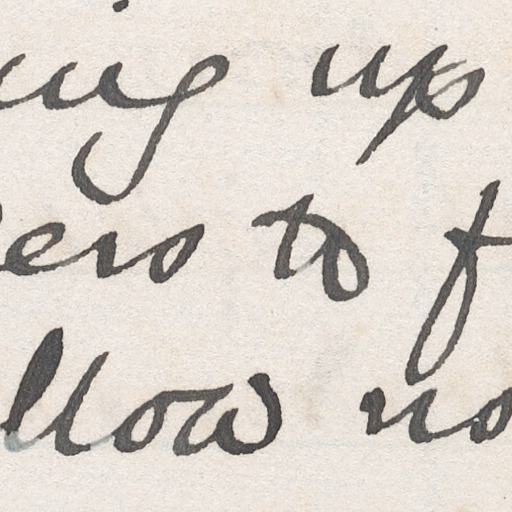 ing up
ers to f
llow no